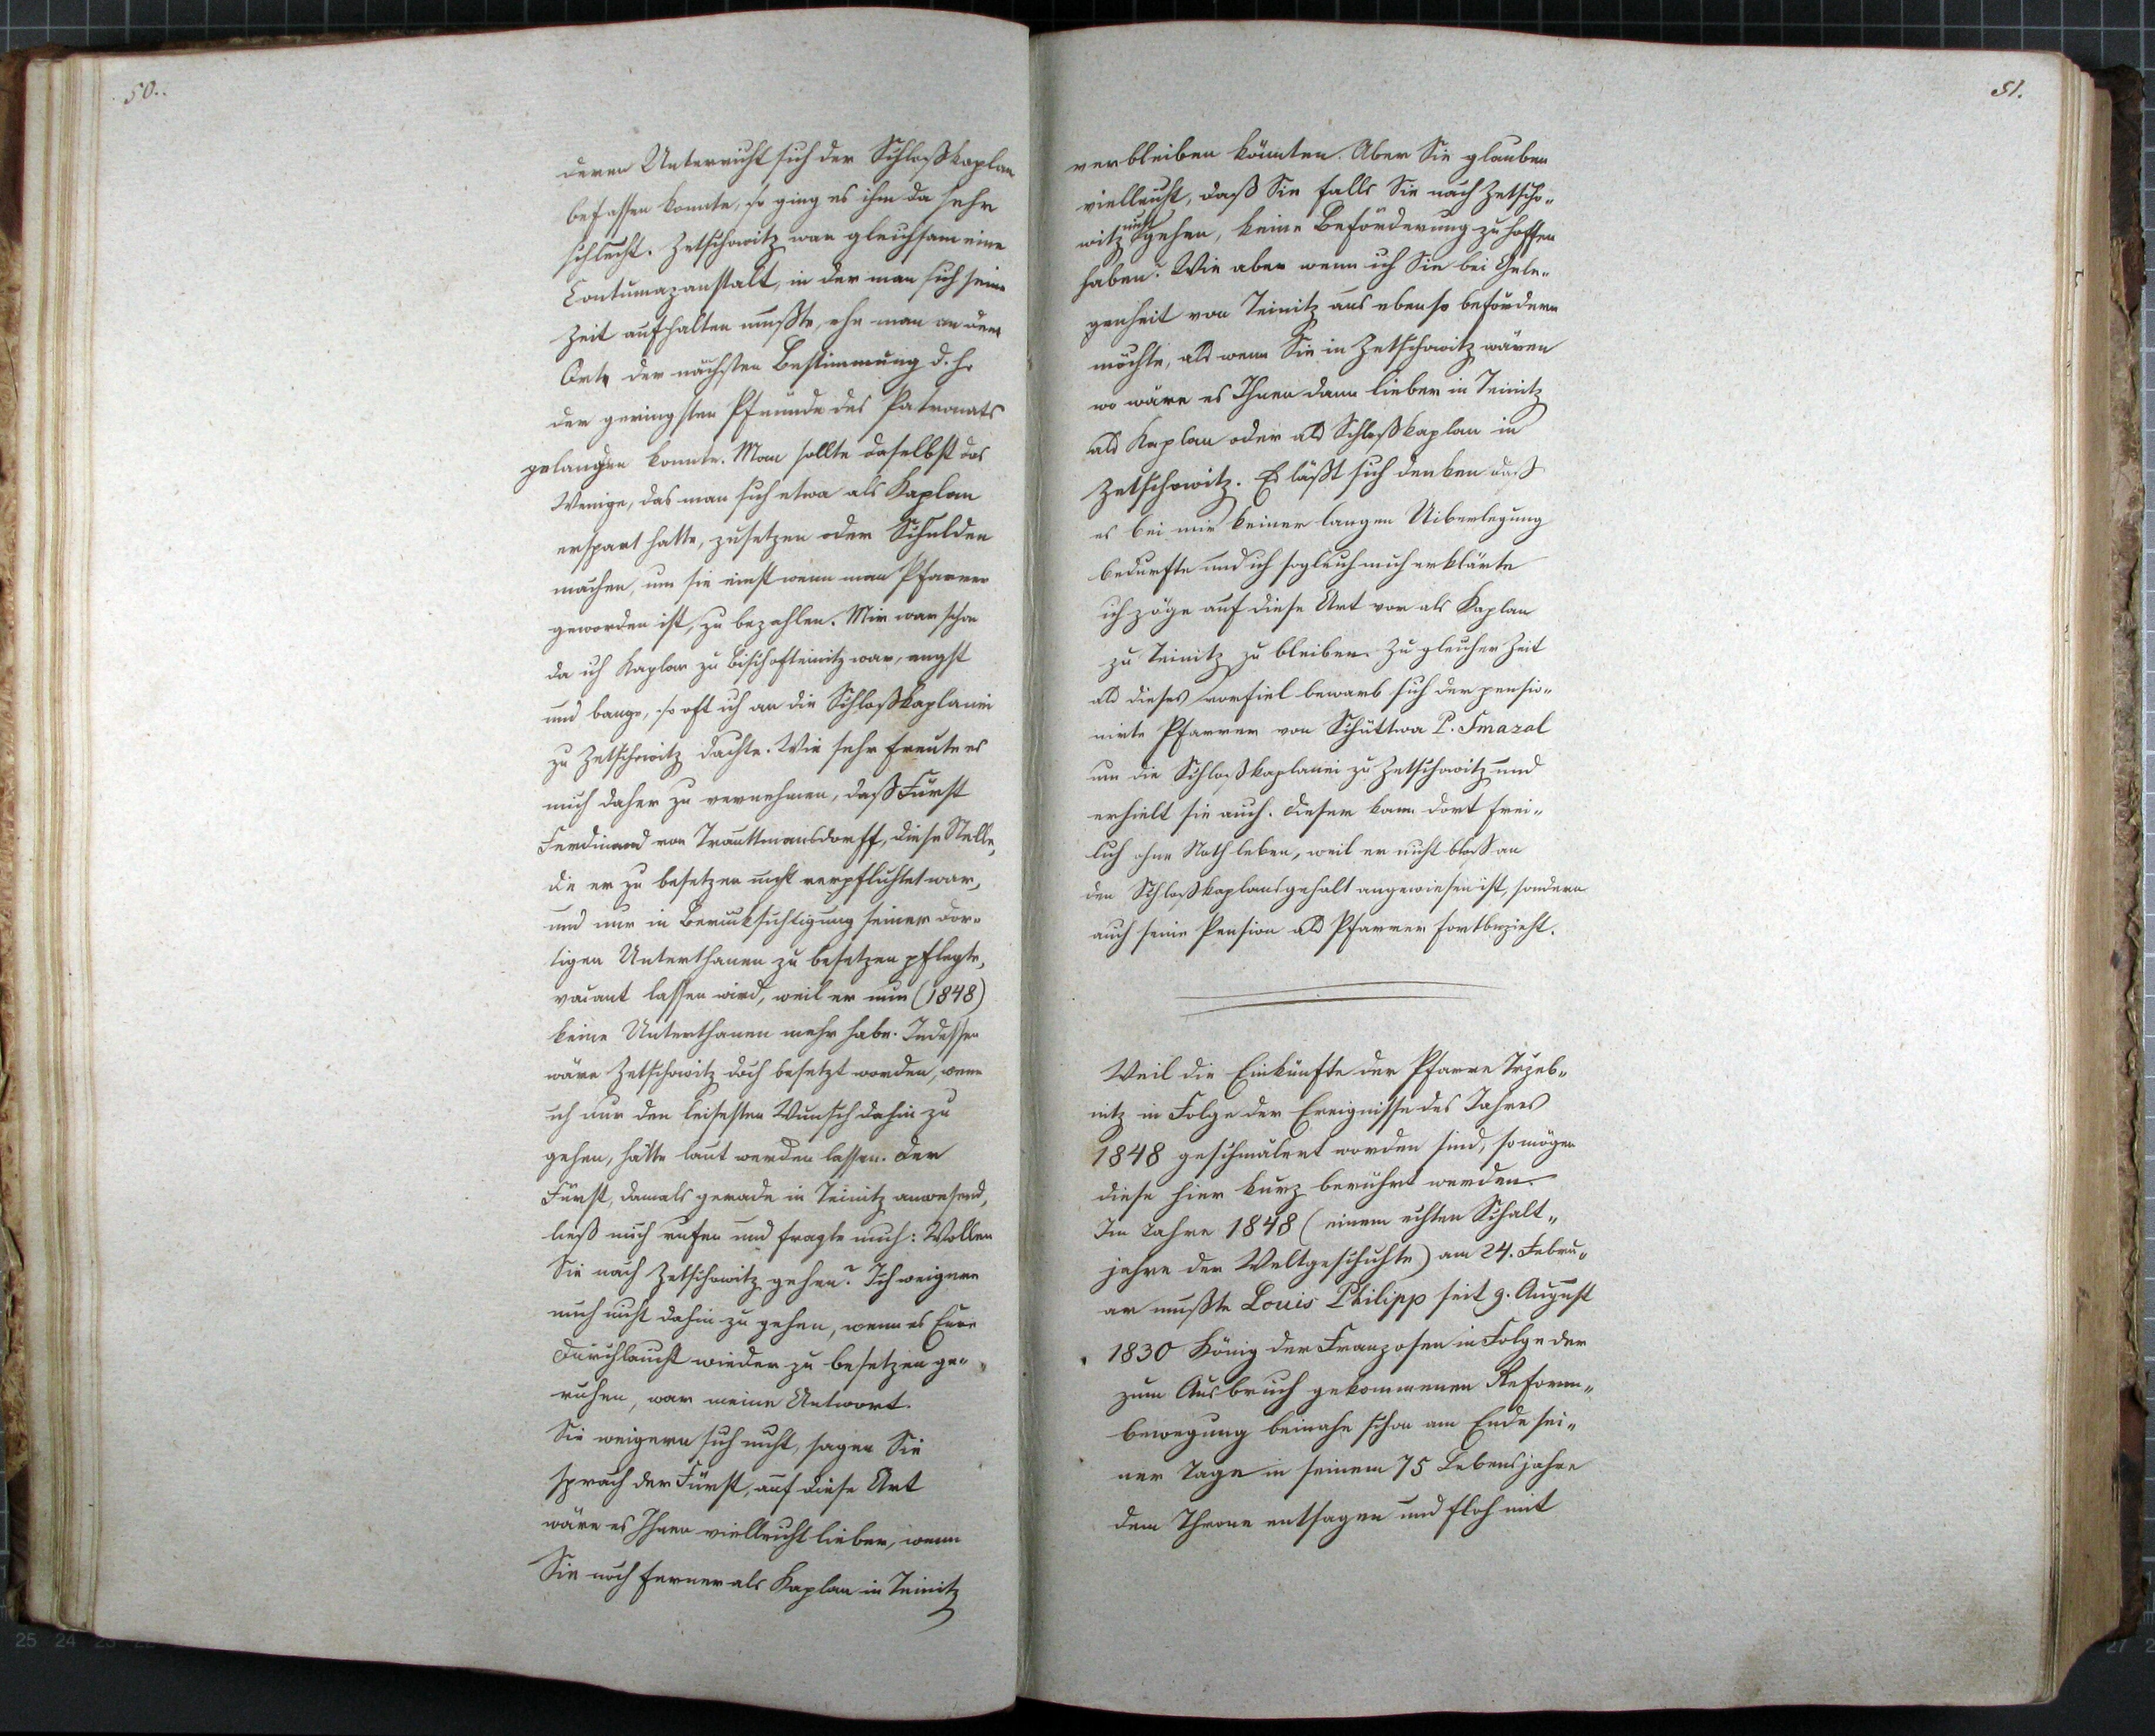 50.
deren Unterricht sich der Schloßkaplan
befassen konnte, so ging es ihm da sehr
schlecht. Zetschowitz war gleichsam eine
Contumazanstalt, in der man sich seine
Zeit aufhalten mußte, ehe man an dem
Orte der nächsten Bestimmung d. h.
der geringsten Pfründe des Patronats
gelangen konnte. Man sollte daselbst das
Wenige, das man sich etwa als Kaplan
erspart hatte, zusetzen oder Schulden
machen, um sie einst wenn man Pfarrer
geworden ist, zu bezahlen. Mir war schon
da ich Kaplan zu Bischofteinitz war, angst
und bange, so oft ich an die Schloßkaplanei
zu Zetschowitz dachte. Wie sehr freute es
mich daher zu vernehmen, daß Fürst
Ferdinand von Trauttmansdorff, diese Stelle,
die er zu besetzen nicht verpflichtet war,
und nur in Berücksichtigung seiner dor„
tigen Unterthanen zu besetzen pflegte,
vacant lassen wird, weil er nun (1848)
keine Unterthanen mehr habe. Indessen
wäre Zetschowitz doch besetzt worden, wenn
ich nur den leisesten Wunsch dahin zu
gehen, hätte laut werden lassen. Der
Fürst, damals gerade in Teinitz anwesend,
ließ mich rufen und fragte mich: Wollen
Sie nach Zetschowitz gehen? Ich weigere
mich nicht dahin zu gehen, wenn es Eure
Durchlaucht wieder zu besetzen ge„
ruhen, war meine Antwort.
Sie weigern sich nicht, sagen Sie
sprach der Fürst, auf diese Art
wäre es Ihnen vielleicht lieber, wenn
Sie noch ferner als Kaplan in Teinitz
51.
verbleiben könnten. Aber Sie glauben
vielleicht, daß Sie falls Sie nach Zetscho„
witz nicht gehen, keine Beförderung zu hoffen
haben? Wie aber wenn ich Sie bei Gele„
genheit von Teinitz aus ebenso befördern
möchte, als wenn Sie in Zetschowitz wären
wo wäre es Ihnen dann lieber in Teinitz
als Kaplan oder als Schloßkaplan in
Zetschowitz. Es läßt sich denken daß
es bei mir keiner langen Uiberlegung
bedurfte und ich sogleich mich erklärte
ich zöge auf diese Art vor als Kaplan
zu Teinitz zu bleiben. Zu gleicher Zeit
als dieses vorfiel bewarb sich der pensio„
nirte Pfarrer von Schüttwa P. Smazal
um die Schloßkaplanei zu Zetschowitz und
erhielt sie auch. Dieser kann dort frei„
lich ohne Noth leben, weil er nicht bloß an
den Schloßkaplansgehalt angewiesen ist, sondern
auch seine Pension als Pfarrer fortbezieht.
Weil die Einkünfte der Pfarre Trzeb„
nitz in Folge der Ereignisse des Jahres
1848 geschmälert worden sind, so mögen
diese hier kurz berührt werden.
Im Jahre 1848 (einem echten Schalt„
jahre der Weltgeschichte) am 24. Febru„
ar mußte Louis Philipp seit 9. August
1830 König der Franzosen in Folge der
zum Ausbruch gekommenen Reform„
bewegung beinahe schon am Ende sei„
ner Tage in seinem 75 Lebensjahre
dem Throne entsagen und floh mit